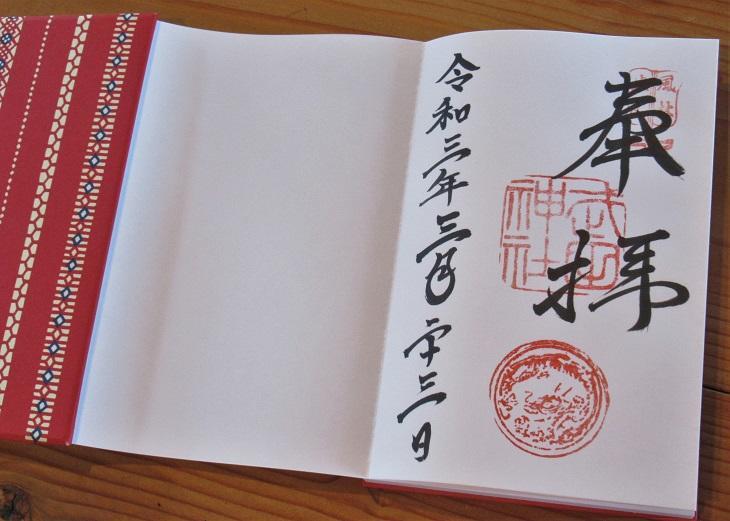 奉拝
神社
令和三年三月二十三日